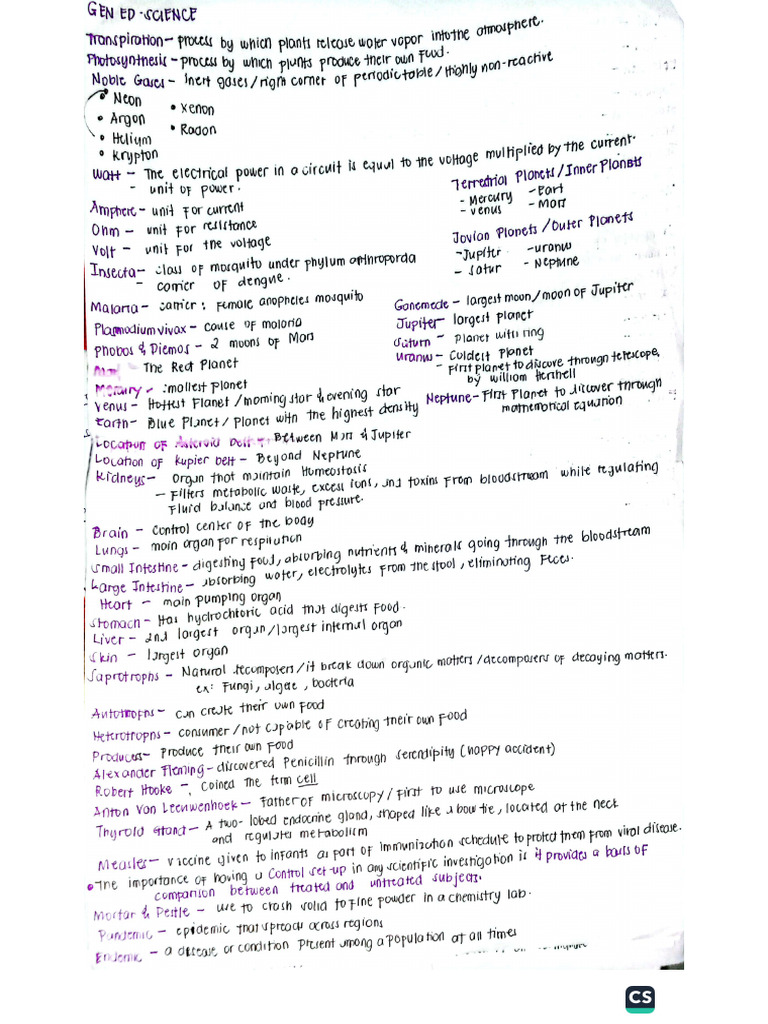 GEN ED - SCIENCE
Transpiration - process by which plants release water vapor into the atmosphere.
Photosynthesis - process by which plants produce their own food.
Noble Gases - Inert gases / right corner of periodic table / highly non-reactive
• Neon
• Argon
• Helium
• Krypton
• Xenon
• Radon
Watt - The electrical power in a circuit is equal to the voltage multiplied by the current.
- unit of power.
Amphere - unit for current
Ohm - unit for resistance
Volt - unit for the voltage
Terrestrial Planets / Inner Planets
- Mercury - Eart
- Venus - Mars
Jovian Planets / Outer Planets
- Jupiter - uranus
- Satur - Neptune
Insecta - class of mosquito under phylum arthroporda
- carrier of dengue.
Malaria - carrier: Female anopheles mosquito
Plasmodium vivax - cause of malaria
Phobos & Diemos - 2 moons of Mars
- The Red Planet
Mercury - smallest planet
Venus - Hottest Planet / morning star & evening star
Earth - Blue Planet / Planet with the highest density
Ganemede - largest moon / moon of Jupiter
Jupiter - largest planet
Saturn - Planet with ring
Uranus - Coldest Planet
- First planet to discove through telescope,
by William Hershell
Neptune - First Planet to discover through
mathematical equation
Location of Asteroid belt - Between Mars & Jupiter
Location of Kupier belt - Beyond Neptune
Kidneys - Organ that maintain Homeostasis
- Filters metabolic waste, excess ions, and toxins from bloodstream while regulating
fluid balance and blood pressure.
Brain - Control center of the body
Lungs - main organ for respiration
Small Intestine - digesting food, absorbing nutrients & minerals going through the bloodstream
Large Intestine - absorbing water, electrolytes from the stool, eliminating feces.
Heart - main pumping organ
Stomach - Has hydrochloric acid that digests food.
Liver - 2nd largest organ / largest internal organ
Skin - largest organ
Saprotrophs - Natural decomposers / it break down organic matters / decomposers of decaying matters.
ex: Fungi, algae, bacteria
Autotrophs - can create their own food
Heterotrophs - consumer / not capable of creating their own food
Producers - Produce their own food
Alexander Fleming - discovered Penicillin through serendipity (happy accident)
Robert Hooke - coined the term cell
Anton Van Leeuwenhoek - Father of microscopy / First to use microscope
Thyroid Gland - A two-lobed endocrine gland, shaped like a bow tie, located at the neck
and regulates metabolism
Measles - Vaccine given to infants as part of immunization schedule to protect them from viral disease.
• The importance of having a Control set-up in any scientific investigation is it provides a basis of
comparison between treated and untreated subjects.
Mortar & Pestle - use to crash solid to fine powder in a chemistry lab.
Pandemic - epidemic that spreads across regions
Endemic - a disease or condition present among a population at all times
CS